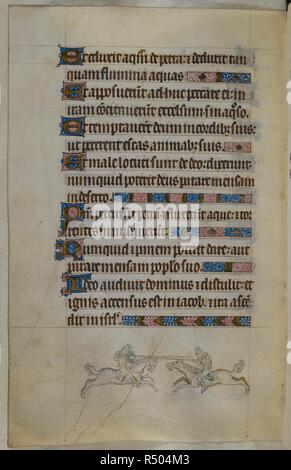 Et eduxit aq̄m de petra: ⁊ deduxit tan
quam flumina aquas
Et apposuerunt adhuc peccare ei: in
iram cōcitauerūt excelsum in aq̄oso.
Et temptauerūt deum in cordib; suis:
ut peterent escas animab; suis.
Et male locuti sunt de deo: dixerunt
nunquid poterit deus parare mensam
in deserto.
aque: ⁊ tor
rentes inundauerūt.
Nunquid ⁊ panem poterit dare: aut
parare mensam populo suo.
Ideo audiuit dominus ⁊ distulit: et
ignis accensus est in iacob. ⁊ ira ascē
dit in isrl'.
alamy
R504M3